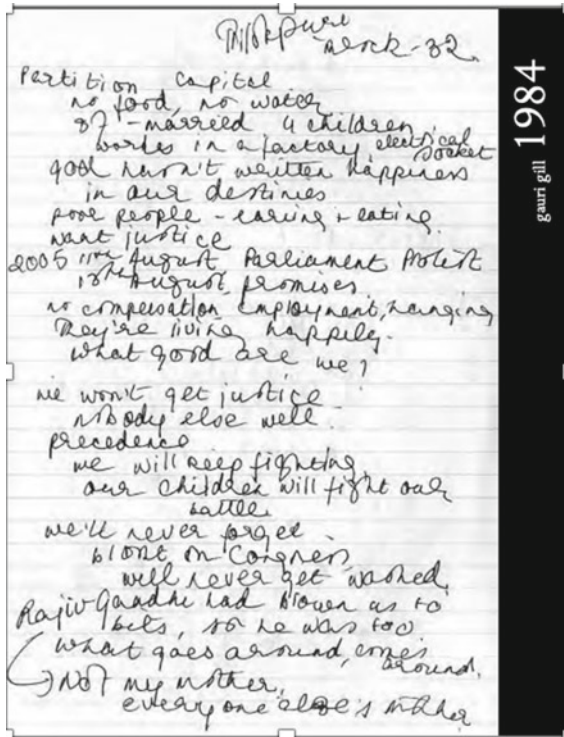 Trilokpuri
Block-32
Partition capital
no food, no water
87 - married 4 children
works in a factory electrical
socket
god hasn't written happiness
in our destinies
poor people - earning + eating.
want justice
2005 11th August Parliament Protest
18th August, promises
no compensation, employment, hanging
They're living happily.
what good are we?
we won't get justice
nobody else well.
precedence
we will keep fighting,
our children will fight our
battle.
we'll never forget.
blott on Congress,
will never get washed.
Rajiv Gandhi had blown us to
bits, so he was too
what goes around, comes
around.
Not my mother,
everyone else's mother
gauri gill 1984